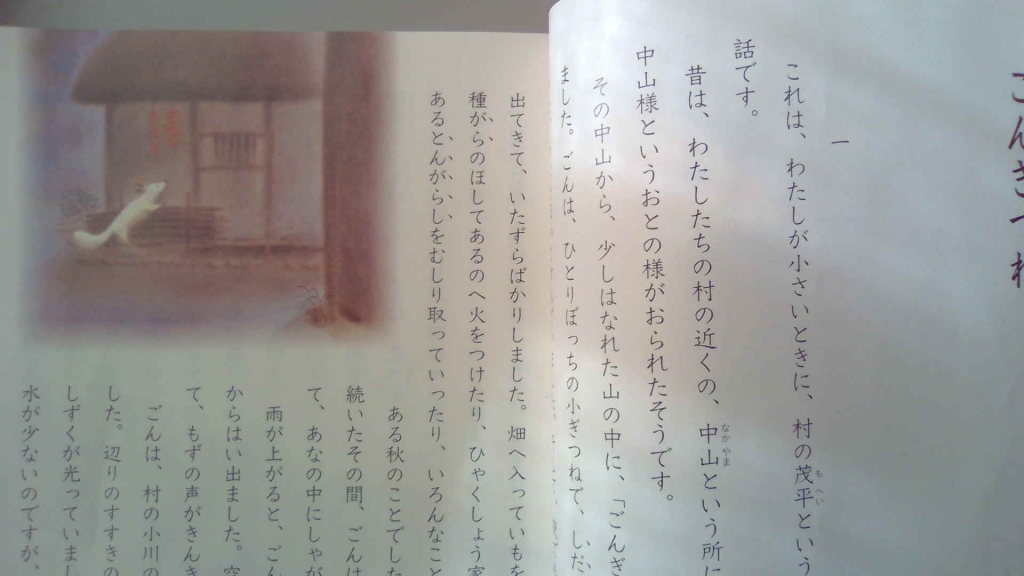 ごんぎつね
一
これは、わたしが小さいときに、村の茂平という
話です。
昔は、わたしたちの村の近くの、中山という所に
中山様というおとの様がおられたそうです。
その中山から、少しはなれた山の中に、「ごんぎ
ました。ごんは、ひとりぼっちの小ぎつねで、しだ
出てきて、いたずらばかりしました。畑へ入っていもを
種がらのほしてあるのへ火をつけたり、ひゃくしょう家
あるとんがらしをむしり取っていったり、いろんなこと
ある秋のことでした
続いたその間、ごんは
て、あなの中にしゃが
雨が上がると、ごん
からはい出ました。空
て、もずの声がきんき
ごんは、村の小川の
した。辺りのすすきの
しずくが光っていまし
水が少ないのですが、